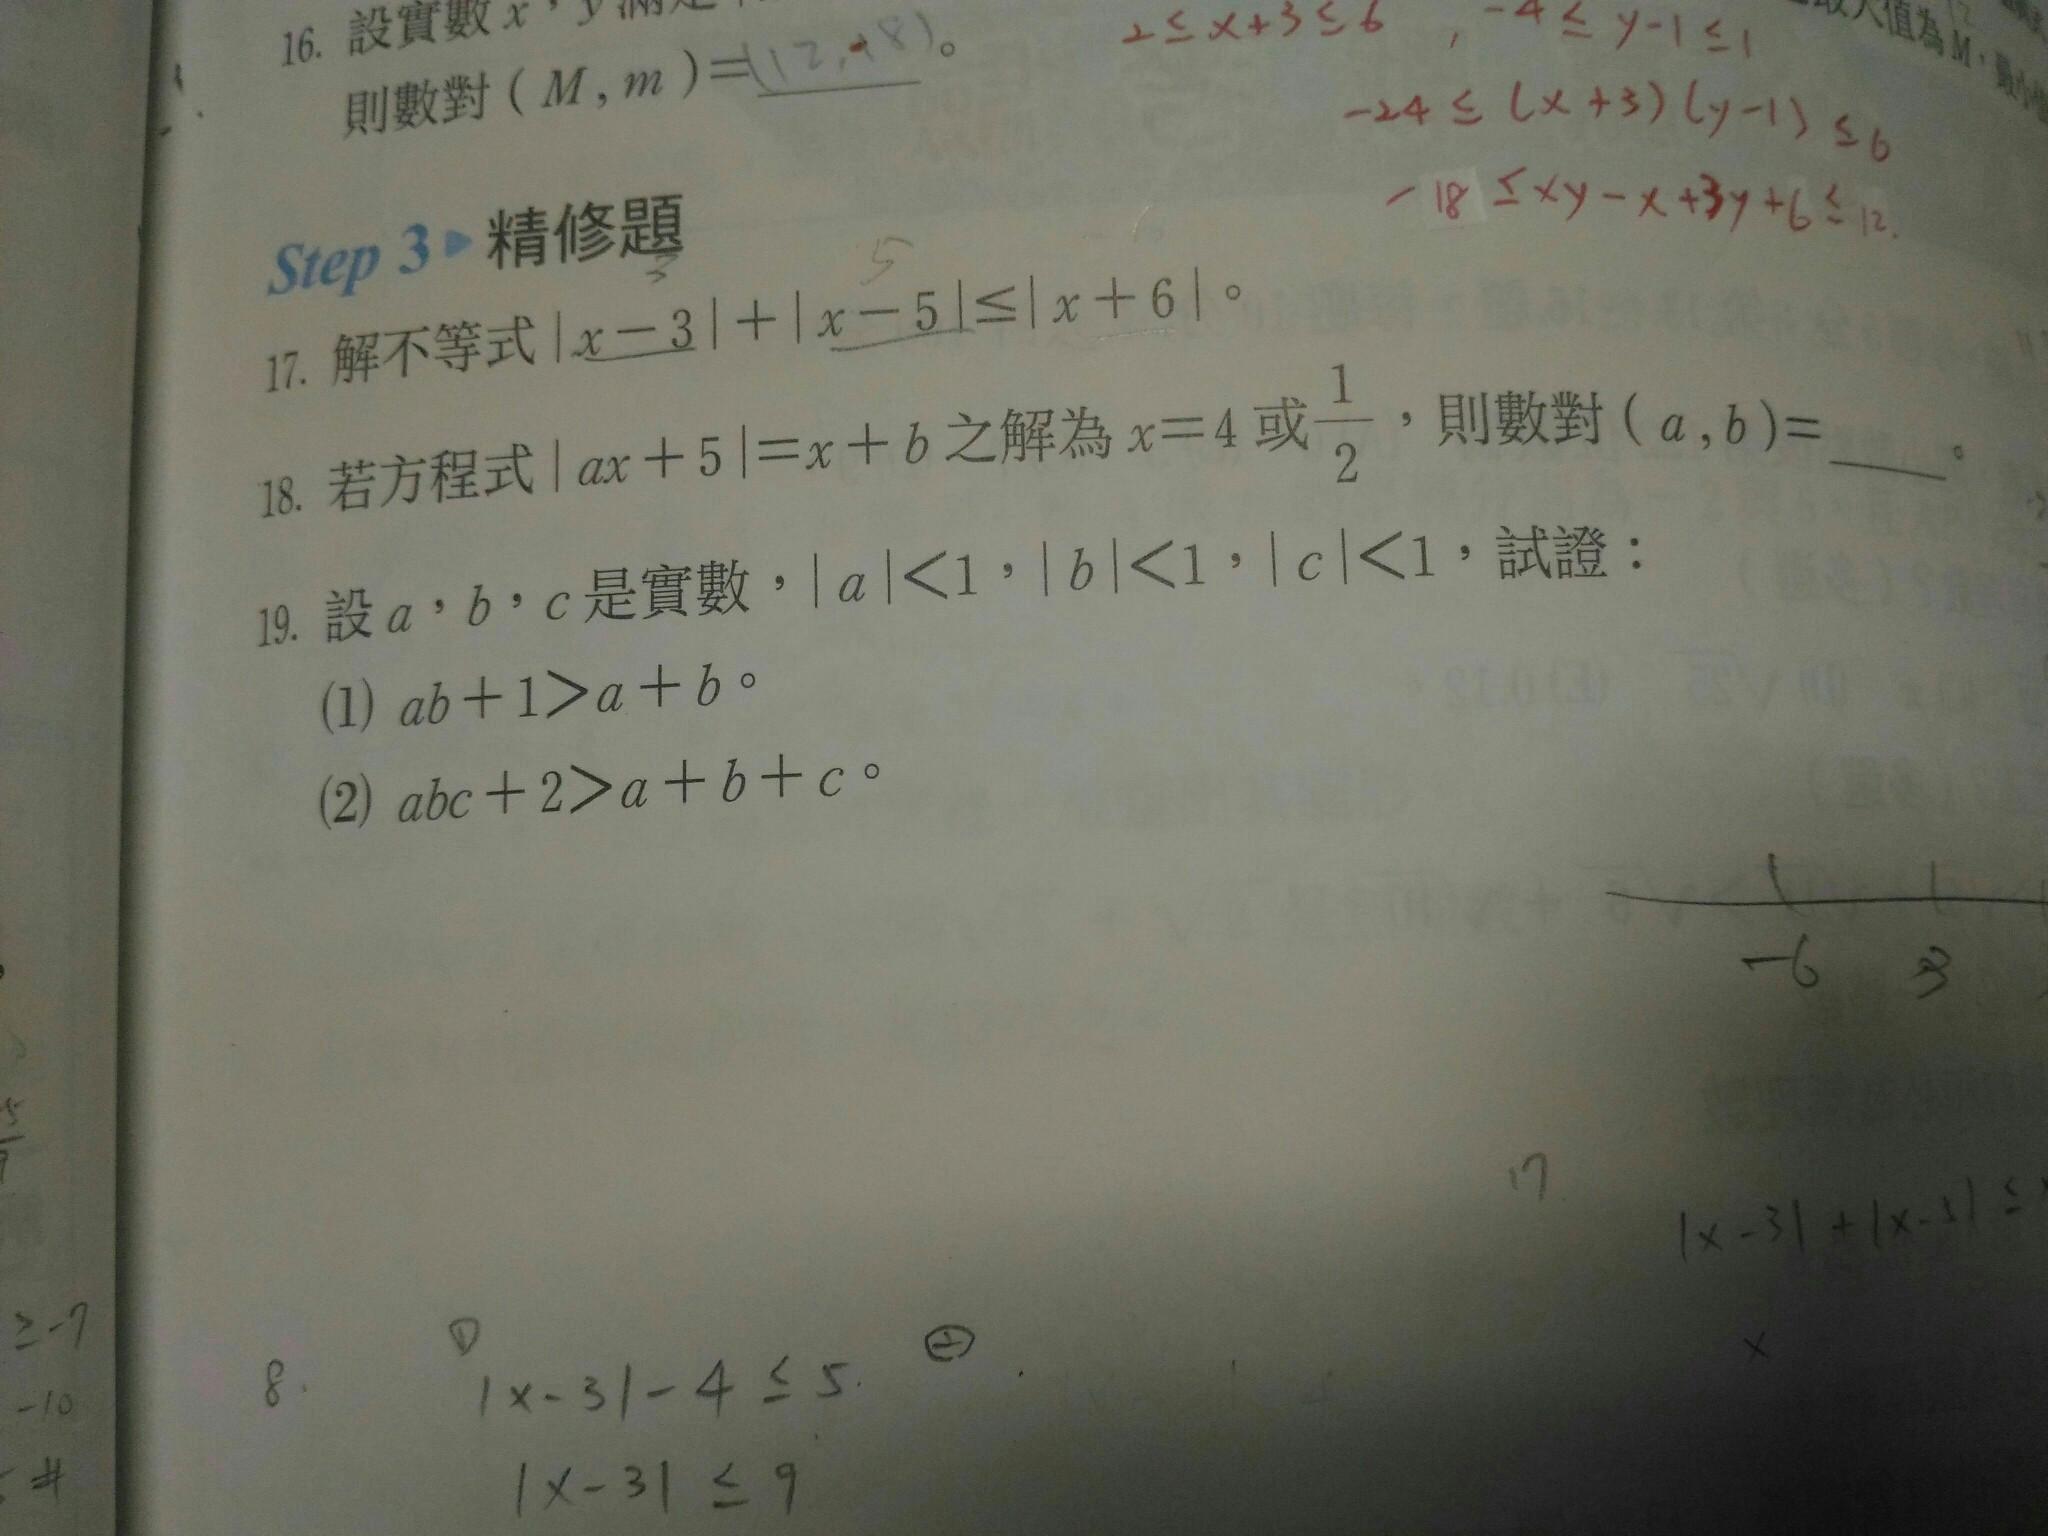 16. 設實數 x，y 滿足
則數對 ( M , m )=(12,-18)。
2≤x+3≤6 , -4≤y-1≤1
-24≤(x+3)(y-1)≤6
-18≤xy-x+3y+6≤12.
最大值為 M，最小
Step 3 精修題
3 5
17. 解不等式 | x－3 |＋| x－5 |≤| x＋6 |。
18. 若方程式 | ax＋5 |=x＋b 之解為 x=4 或 1/2，則數對 ( a , b )=____。
19. 設 a，b，c 是實數，| a |<1，| b |<1，| c |<1，試證：
(1) ab＋1>a＋b。
(2) abc＋2>a＋b＋c。
-6 3
17.
|x-3|+|x-5|≤
x
≥-7
-10
#
8. ①
|x-3|-4≤5.
|x-3|≤9